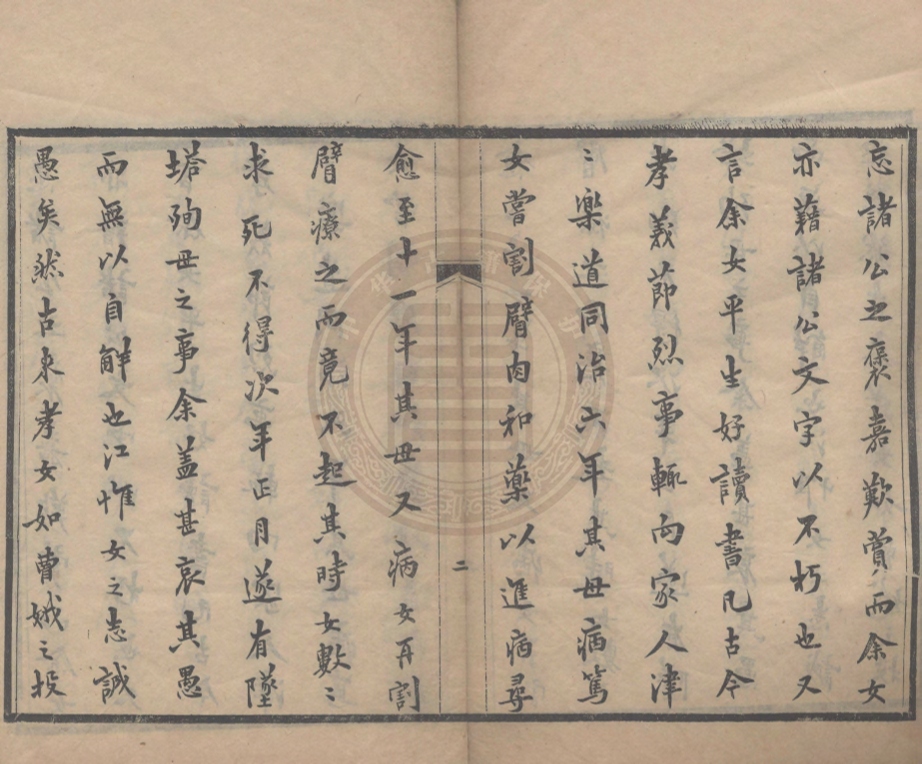 忘諸公之褒嘉歎賞而余女
亦藉諸公文字以不朽也又
言余女平生好讀書凡古今
孝義節烈事輒向家人津
〻樂道同治六年其母病篤
女嘗割臂肉和藥以進病尋
二
愈至十一年其母又病女再割
臂療之而竟不起其時女數〻
求死不得次年正月遂有墜
塔殉母之事余盖甚哀其愚
而無以自解也江惟女之志誠
愚矣然古來孝女如曹娥之投